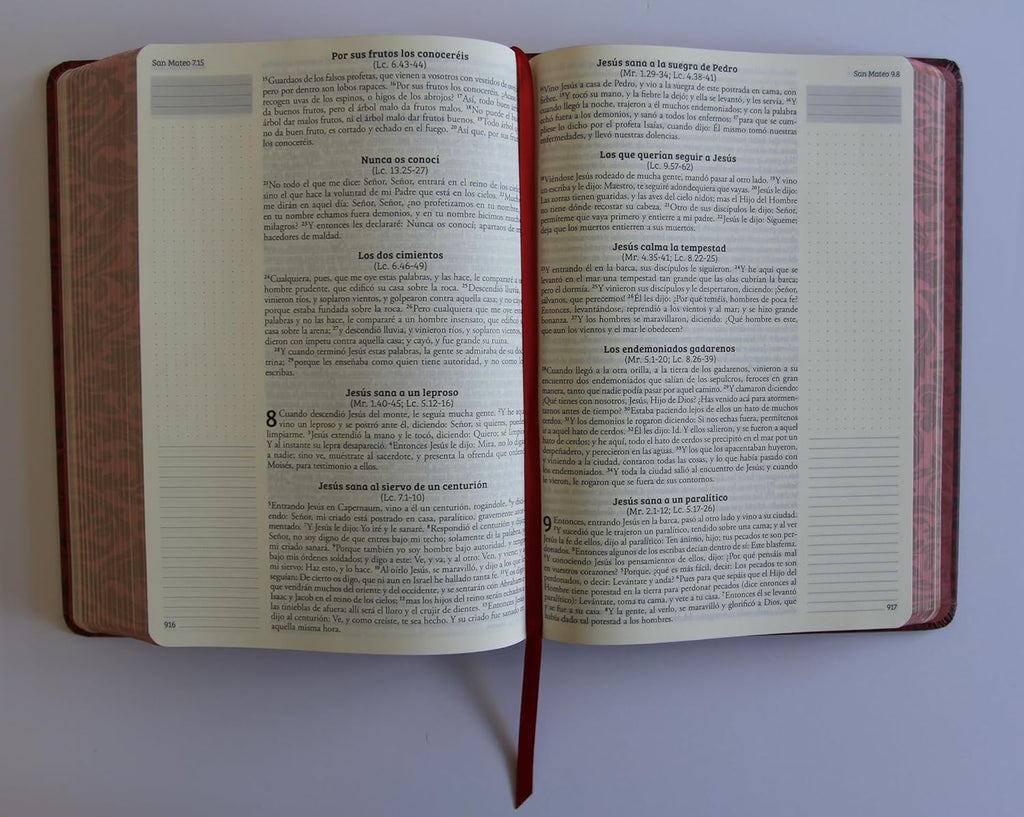 San Mateo 7.15
Por sus frutos los conoceréis
(Lc. 6.43-44)
15Guardaos de los falsos profetas, que vienen a vosotros con vestidos de
pero por dentro son lobos rapaces. 16Por sus frutos los conoceréis. ¿Acaso
recogen uvas de los espinos, o higos de los abrojos? 17Así, todo buen
da buenos frutos, pero el árbol malo da frutos malos. 18No puede el
árbol dar malos frutos, ni el árbol malo dar frutos buenos. 19Todo árbol
no da buen fruto, es cortado y echado en el fuego. 20Así que, por sus
los conoceréis.
Nunca os conocí
(Lc. 13.25-27)
21No todo el que me dice: Señor, Señor, entrará en el reino de los
sino el que hace la voluntad de mi Padre que está en los cielos. 22
me dirán en aquel día: Señor, Señor, ¿no profetizamos en tu nombre,
en tu nombre echamos fuera demonios, y en tu nombre hicimos
milagros? 23Y entonces les declararé: Nunca os conocí; apartaos de
hacedores de maldad.
Los dos cimientos
(Lc. 6.46-49)
24Cualquiera, pues, que me oye estas palabras, y las hace, le compararé a
hombre prudente, que edificó su casa sobre la roca. 25Descendió lluvia,
vinieron ríos, y soplaron vientos, y golpearon contra aquella casa; y no
porque estaba fundada sobre la roca. 26Pero cualquiera que me oye
palabras y no las hace, le compararé a un hombre insensato, que edificó
casa sobre la arena; 27y descendió lluvia, y vinieron ríos, y soplaron vientos,
dieron con ímpetu contra aquella casa; y cayó, y fue grande su ruina.
28Y cuando terminó Jesús estas palabras, la gente se admiraba de su
trina; 29porque les enseñaba como quien tiene autoridad, y no como
escribas.
Jesús sana a un leproso
(Mr. 1.40-45; Lc. 5.12-16)
8 Cuando descendió Jesús del monte, le seguía mucha gente. 2Y he
vino un leproso y se postró ante él, diciendo: Señor, si quieres, puedes
limpiarme. 3Jesús extendió la mano y le tocó, diciendo: Quiero; sé limpio.
Y al instante su lepra desapareció. 4Entonces Jesús le dijo: Mira, no lo
a nadie; sino ve, muéstrate al sacerdote, y presenta la ofrenda que
Moisés, para testimonio a ellos.
Jesús sana al siervo de un centurión
(Lc. 7.1-10)
5Entrando Jesús en Capernaum, vino a él un centurión, rogándole, 6y
endo: Señor, mi criado está postrado en casa, paralítico, gravemente
mentado. 7Y Jesús le dijo: Yo iré y le sanaré. 8Respondió el centurión y
Señor, no soy digno de que entres bajo mi techo; solamente di la palabra, y
mi criado sanará. 9Porque también yo soy hombre bajo autoridad, y
bajo mis órdenes soldados; y digo a este: Ve, y va; y al otro: Ven, y viene;
mi siervo: Haz esto, y lo hace. 10Al oírlo Jesús, se maravilló, y dijo a los que
seguían: De cierto os digo, que ni aun en Israel he hallado tanta fe. 11Y os
que vendrán muchos del oriente y del occidente, y se sentarán con Abraham
Isaac y Jacob en el reino de los cielos; 12mas los hijos del reino serán
las tinieblas de afuera; allí será el lloro y el crujir de dientes. 13Entonces Jesús
dijo al centurión: Ve, y como creíste, te sea hecho. Y su criado fue sanado
aquella misma hora.
916
San Mateo 9.8
Jesús sana a la suegra de Pedro
(Mr. 1.29-34; Lc. 4.38-41)
14Vino Jesús a casa de Pedro, y vio a la suegra de este postrada en cama, con
fiebre. 15Y tocó su mano, y la fiebre la dejó; y ella se levantó, y les servía. 16Y
cuando llegó la noche, trajeron a él muchos endemoniados; y con la palabra
echó fuera a los demonios, y sanó a todos los enfermos; 17para que se cum-
pliese lo dicho por el profeta Isaías, cuando dijo: Él mismo tomó nuestras
enfermedades, y llevó nuestras dolencias.
Los que querían seguir a Jesús
(Lc. 9.57-62)
18Viéndose Jesús rodeado de mucha gente, mandó pasar al otro lado. 19Y vino
un escriba y le dijo: Maestro, te seguiré adondequiera que vayas. 20Jesús le dijo:
Las zorras tienen guaridas, y las aves del cielo nidos; mas el Hijo del Hombre
no tiene dónde recostar su cabeza. 21Otro de sus discípulos le dijo: Señor,
permíteme que vaya primero y entierre a mi padre. 22Jesús le dijo: Sígueme;
deja que los muertos entierren a sus muertos.
Jesús calma la tempestad
(Mr. 4.35-41; Lc. 8.22-25)
23Y entrando él en la barca, sus discípulos le siguieron. 24Y he aquí que se
levantó en el mar una tempestad tan grande que las olas cubrían la barca;
pero él dormía. 25Y vinieron sus discípulos y le despertaron, diciendo: ¡Señor,
sálvanos, que perecemos! 26Él les dijo: ¿Por qué teméis, hombres de poca fe?
Entonces, levantándose, reprendió a los vientos y al mar; y se hizo grande
bonanza. 27Y los hombres se maravillaron, diciendo: ¿Qué hombre es este,
que aun los vientos y el mar le obedecen?
Los endemoniados gadarenos
(Mr. 5.1-20; Lc. 8.26-39)
28Cuando llegó a la otra orilla, a la tierra de los gadarenos, vinieron a su
encuentro dos endemoniados que salían de los sepulcros, feroces en gran
manera, tanto que nadie podía pasar por aquel camino. 29Y clamaron diciendo:
¿Qué tienes con nosotros, Jesús, Hijo de Dios? ¿Has venido acá para atormen-
tarnos antes de tiempo? 30Estaba paciendo lejos de ellos un hato de muchos
cerdos. 31Y los demonios le rogaron diciendo: Si nos echas fuera, permítenos
ir a aquel hato de cerdos. 32Él les dijo: Id. Y ellos salieron, y se fueron a aquel
hato de cerdos; y he aquí, todo el hato de cerdos se precipitó en el mar por un
despeñadero, y perecieron en las aguas. 33Y los que los apacentaban huyeron,
y viniendo a la ciudad, contaron todas las cosas, y lo que había pasado con
los endemoniados. 34Y toda la ciudad salió al encuentro de Jesús; y cuando
le vieron, le rogaron que se fuera de sus contornos.
Jesús sana a un paralítico
(Mr. 2.1-12; Lc. 5.17-26)
9 Entonces, entrando Jesús en la barca, pasó al otro lado y vino a su ciudad.
2Y sucedió que le trajeron un paralítico, tendido sobre una cama; y al ver
Jesús la fe de ellos, dijo al paralítico: Ten ánimo, hijo; tus pecados te son per-
donados. 3Entonces algunos de los escribas decían dentro de sí: Este blasfema.
4Y conociendo Jesús los pensamientos de ellos, dijo: ¿Por qué pensáis mal
en vuestros corazones? 5Porque, ¿qué es más fácil, decir: Los pecados te son
perdonados, o decir: Levántate y anda? 6Pues para que sepáis que el Hijo del
Hombre tiene potestad en la tierra para perdonar pecados (dice entonces al
paralítico): Levántate, toma tu cama, y vete a tu casa. 7Entonces él se levantó
y se fue a su casa. 8Y la gente, al verlo, se maravilló y glorificó a Dios, que
había dado tal potestad a los hombres.
917